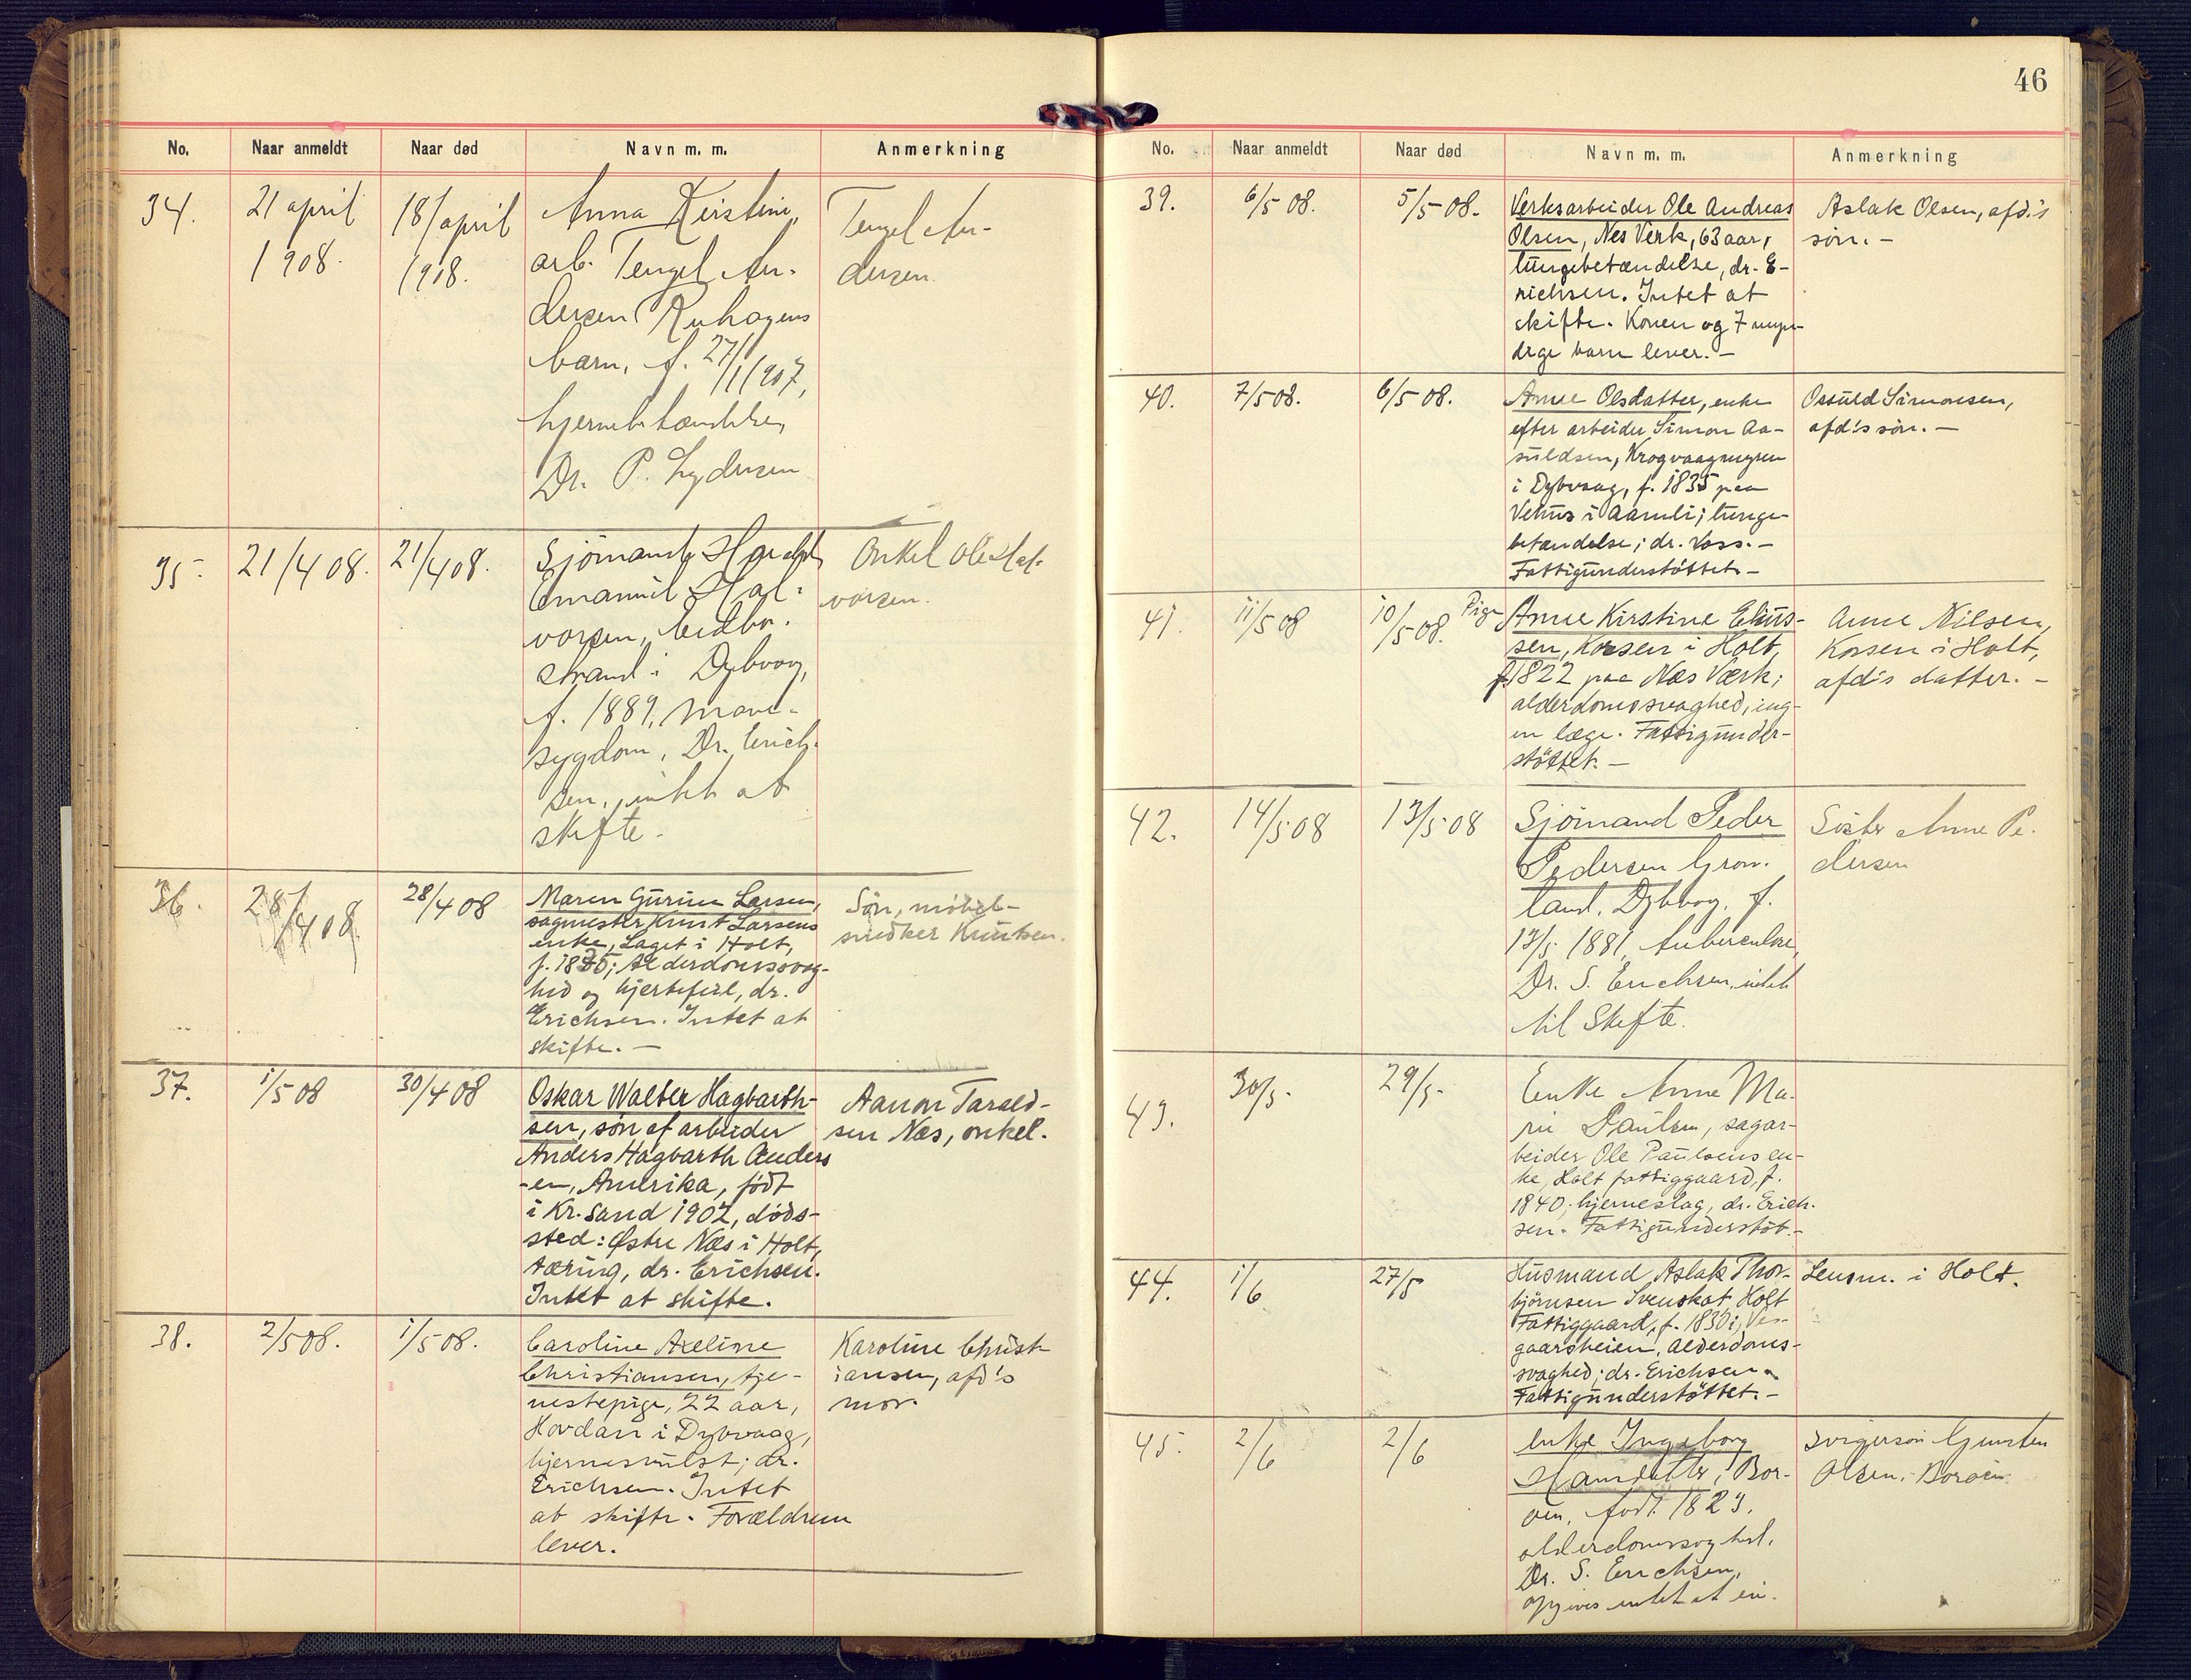 No.
Naar anmeldt
Naar død
Navn m. m.
Anmerkning
34.
21 april
1908.
18/april
1908.
Anna Kirstine,
arb. Tengel An-
dersen Ruhagens
barn, f. 27/
11 1907,
hjernebetændelse,
Dr. P. Lydersen
Tengel An-
dersen.
35.
21/4 08.
21/4 08.
Sjömand Harald
Emanuel Hal-
vorsen, Eidbo.
strand i Dybvag,
f. 1889, mave-
sygdom, Dr. Erich-
sen, intet at
skifte.
Onkel Ole Hal-
vorsen.
36.
28/4 08
28/4 08
Maren Gurine Larsen,
sagmester Knut Larsens
enke, Laget i Holt,
f. 1835; Alderdomssvag-
hed og hjertefeil, dr.
Erichsen. Intet at
skifte. —
Sön, möbel-
snedker Knutsen.
37.
1/5 08
30/4 08
Oskar Walter Hagbarth-
sen, sön af arbeider
Anders Hagbarth Anders
-en, Amerika, födt
i Kr.sand 1902, döds-
sted: Østre Næs i Holt,
tæring, dr. Erichsen.
Intet at skifte.
Aanon Tarald-
sen Næs, onkel.
38.
2/5 08.
1/5 08.
Caroline Axeline
Christiansen, tje-
nestepige, 22 aar,
Hovdan i Dybvaag,
hjernesvulst; dr.
Erichsen. Intet
at skifte. Forældrene
lever.
Karoline Christ-
iansen, afd's
mor.
46
No.
Naar anmeldt
Naar død
Navn m. m.
Anmerkning
39.
6/5 08.
5/5 08.
Verksarbeider Ole Andreas
Olsen, Nes Verk, 63 aar,
lungebetændelse, dr. E-
richsen. Intet at
skifte. Konen og 7 myn-
dige barn lever. —
Aslak Olsen, afd.'s
sön. —
40.
7/5 08.
6/5 08.
Anne Olsdatter, enke
efter arbeider Simon Aa-
suldsen, Krogvaagmyren
i Dybvaag, f. 1835 paa
Vehus i Aamli; lunge-
betændelse; dr. Voss. —
Fattigunderstöttet. —
Osuld Simonsen,
afd's sön. —
41.
11/5 08
10/5 08.
Pige
Anne Kirstine Elius-
sen, Korsen i Holt,
f. 1822 paa Næs Værk;
alderdomssvaghed, ing-
en læge. Fattigunder-
stöttet. —
Anne Nilsen,
Korsen i Holt,
afd's datter. —
42.
14/5 08
13/5 08
Sjömand Peder
Pedersen Grön-
land, Dybvag, f.
17/5 1881, tuberculose,
Dr. S. Erichsen, intet
til Skifte.
Söster Anne Pe-
dersen
43.
30/5.
29/5.
Enke Anne Ma-
rie Paulsen, sagar-
beider Ole Paulsens en-
ke, Holt fattiggaard, f.
1840; hjerneslag, dr. Erich-
sen. Fattigunderstöt. —
44.
1/6
27/5
Husmand Aslak Thor-
björnsen Svenskat, Holt
Fattiggaard, f. 1830 i Ve-
gaarsheien, Alderdoms-
svaghed; dr. Erichsen.
Fattigunderstöttet. —
Lensm. i Holt.
45.
2/6
2/6
Enke Ingeborg
Hansdatter, Bor-
öen, födt 1823.
alderdomssvaghed,
Dr. S. Erichsen,
opgives intet at eie.
Svigersön Gunsten
Olsen, Boröen.